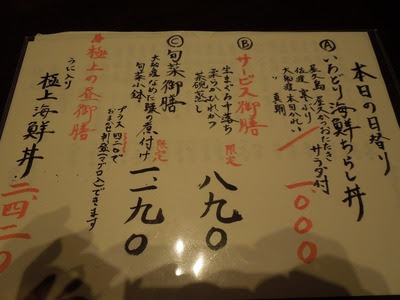 本日の日替り
Ⓐ いろどり海鮮ちらし丼
屋久島 屋久かつおたたき サラダ付
佐渡 寒ぶり
大船渡 本日かれい
〃 真鯛
一〇〇〇
Ⓑ サービス御膳 限定
生まぐろ中落ち
柔らかひれかつ
茶碗蒸し
八九〇
Ⓒ 旬菜御膳 限定
大船渡なめた鰈の煮付け
旬菜小鉢
一二九〇
極上の昼御膳
プラス四二〇で
おまかせ刺登(マグロ入)できます
うに入り
極上海鮮丼
二、四二〇